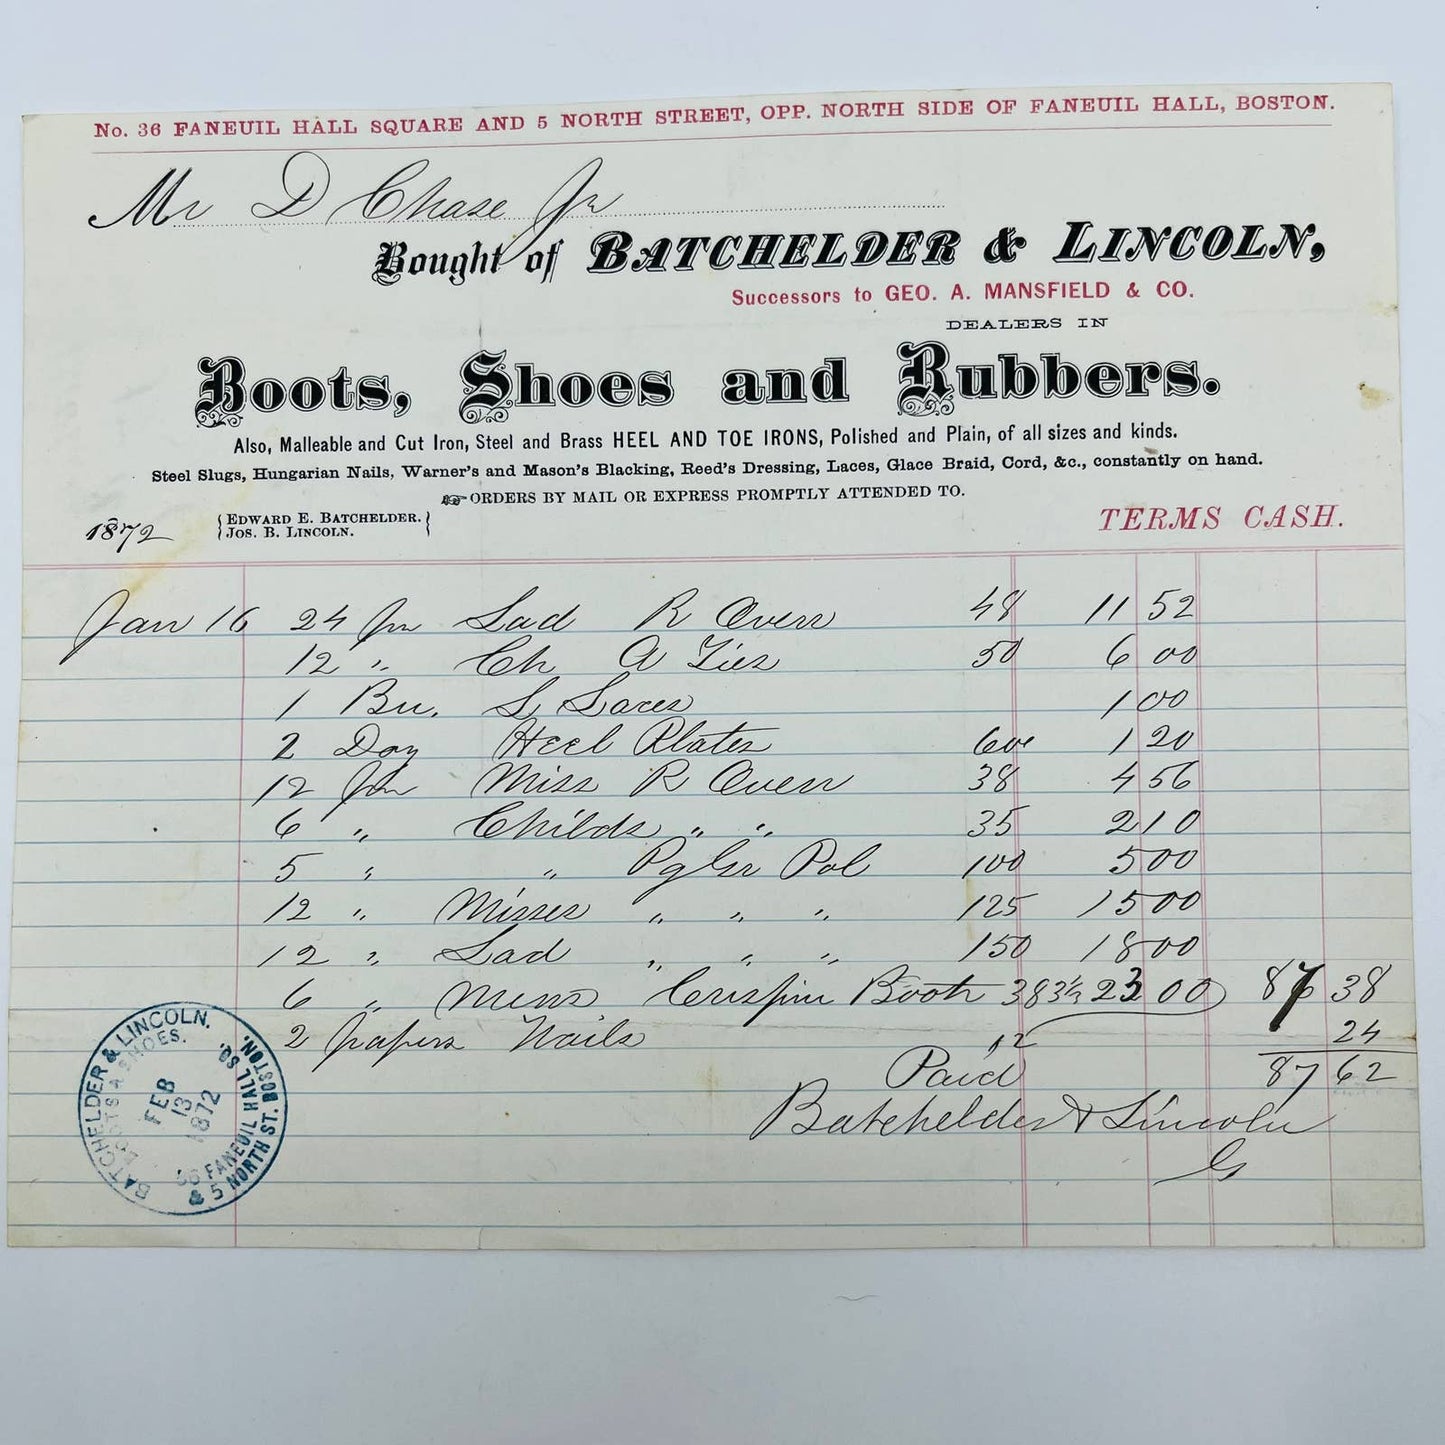 No. 36 FANEUIL HALL SQUARE AND 5 NORTH STREET, OPP. NORTH SIDE OF FANEUIL HALL, BOSTON.
Mr D Chase Jr
Bought of BATCHELDER & LINCOLN,
Successors to GEO. A. MANSFIELD & CO.
DEALERS IN
Boots, Shoes and Rubbers.
Also, Malleable and Cut Iron, Steel and Brass HEEL AND TOE IRONS, Polished and Plain, of all sizes and kinds.
Steel Slugs, Hungarian Nails, Warner's and Mason's Blacking, Reed's Dressing, Laces, Glace Braid, Cord, &c., constantly on hand.
ORDERS BY MAIL OR EXPRESS PROMPTLY ATTENDED TO.
1872 EDWARD E. BATCHELDER. TERMS CASH.
JOS. B. LINCOLN.
Jan 16 24 Lad R Overs 48 11 52
12 " Ch A Ties 50 6 00
1 L Laces 1 00
2 Doz Heel Plates 60c 1 20
12 Miss R Overs 38 4 56
6 " Childs " " 35 2 10
5 " " Pol 100 5 00
12 " Misses " " " 125 15 00
12 " Lad " " " 150 18 00
6 " Mens Crispin Boots 383½ 23 00 87 38
2 papers Nails 12 24
Paid 87 62
Batchelder & Lincoln
G
BATCHELDER & LINCOLN.
BOOTS & SHOES.
FEB
13
1872
36 FANEUIL HALL SQ.
& 5 NORTH ST. BOSTON.